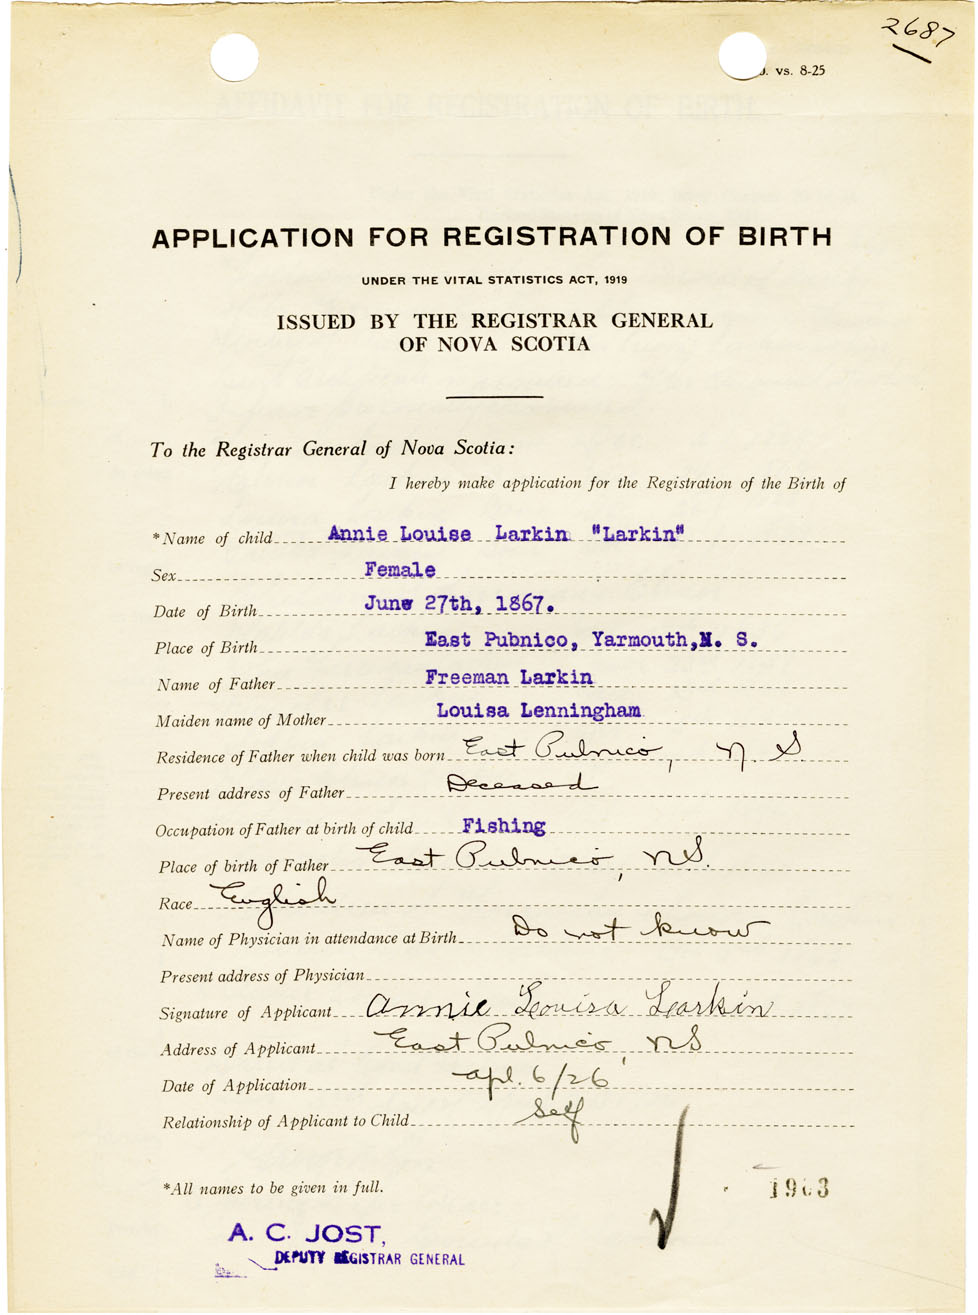 2687
. vs. 8-25
APPLICATION FOR REGISTRATION OF BIRTH
UNDER THE VITAL STATISTICS ACT, 1919
ISSUED BY THE REGISTRAR GENERAL
OF NOVA SCOTIA
To the Registrar General of Nova Scotia:
I hereby make application for the Registration of the Birth of
*Name of child Annie Louise Larkin "Larkin"
Sex Female
Date of Birth June 27th, 1867.
Place of Birth East Pubnico, Yarmouth, N. S.
Name of Father Freeman Larkin
Maiden name of Mother Louisa Lenningham
Residence of Father when child was born East Pubnico, N. S.
Present address of Father Deceased
Occupation of Father at birth of child Fishing
Place of birth of Father East Pubnico, N.S.
Race English
Name of Physician in attendance at Birth Do not know
Present address of Physician
Signature of Applicant Annie Louisa Larkin
Address of Applicant East Pubnico, NS
Date of Application apl. 6/26
Relationship of Applicant to Child Self
*All names to be given in full.
1903
A. C. JOST,
DEPUTY REGISTRAR GENERAL